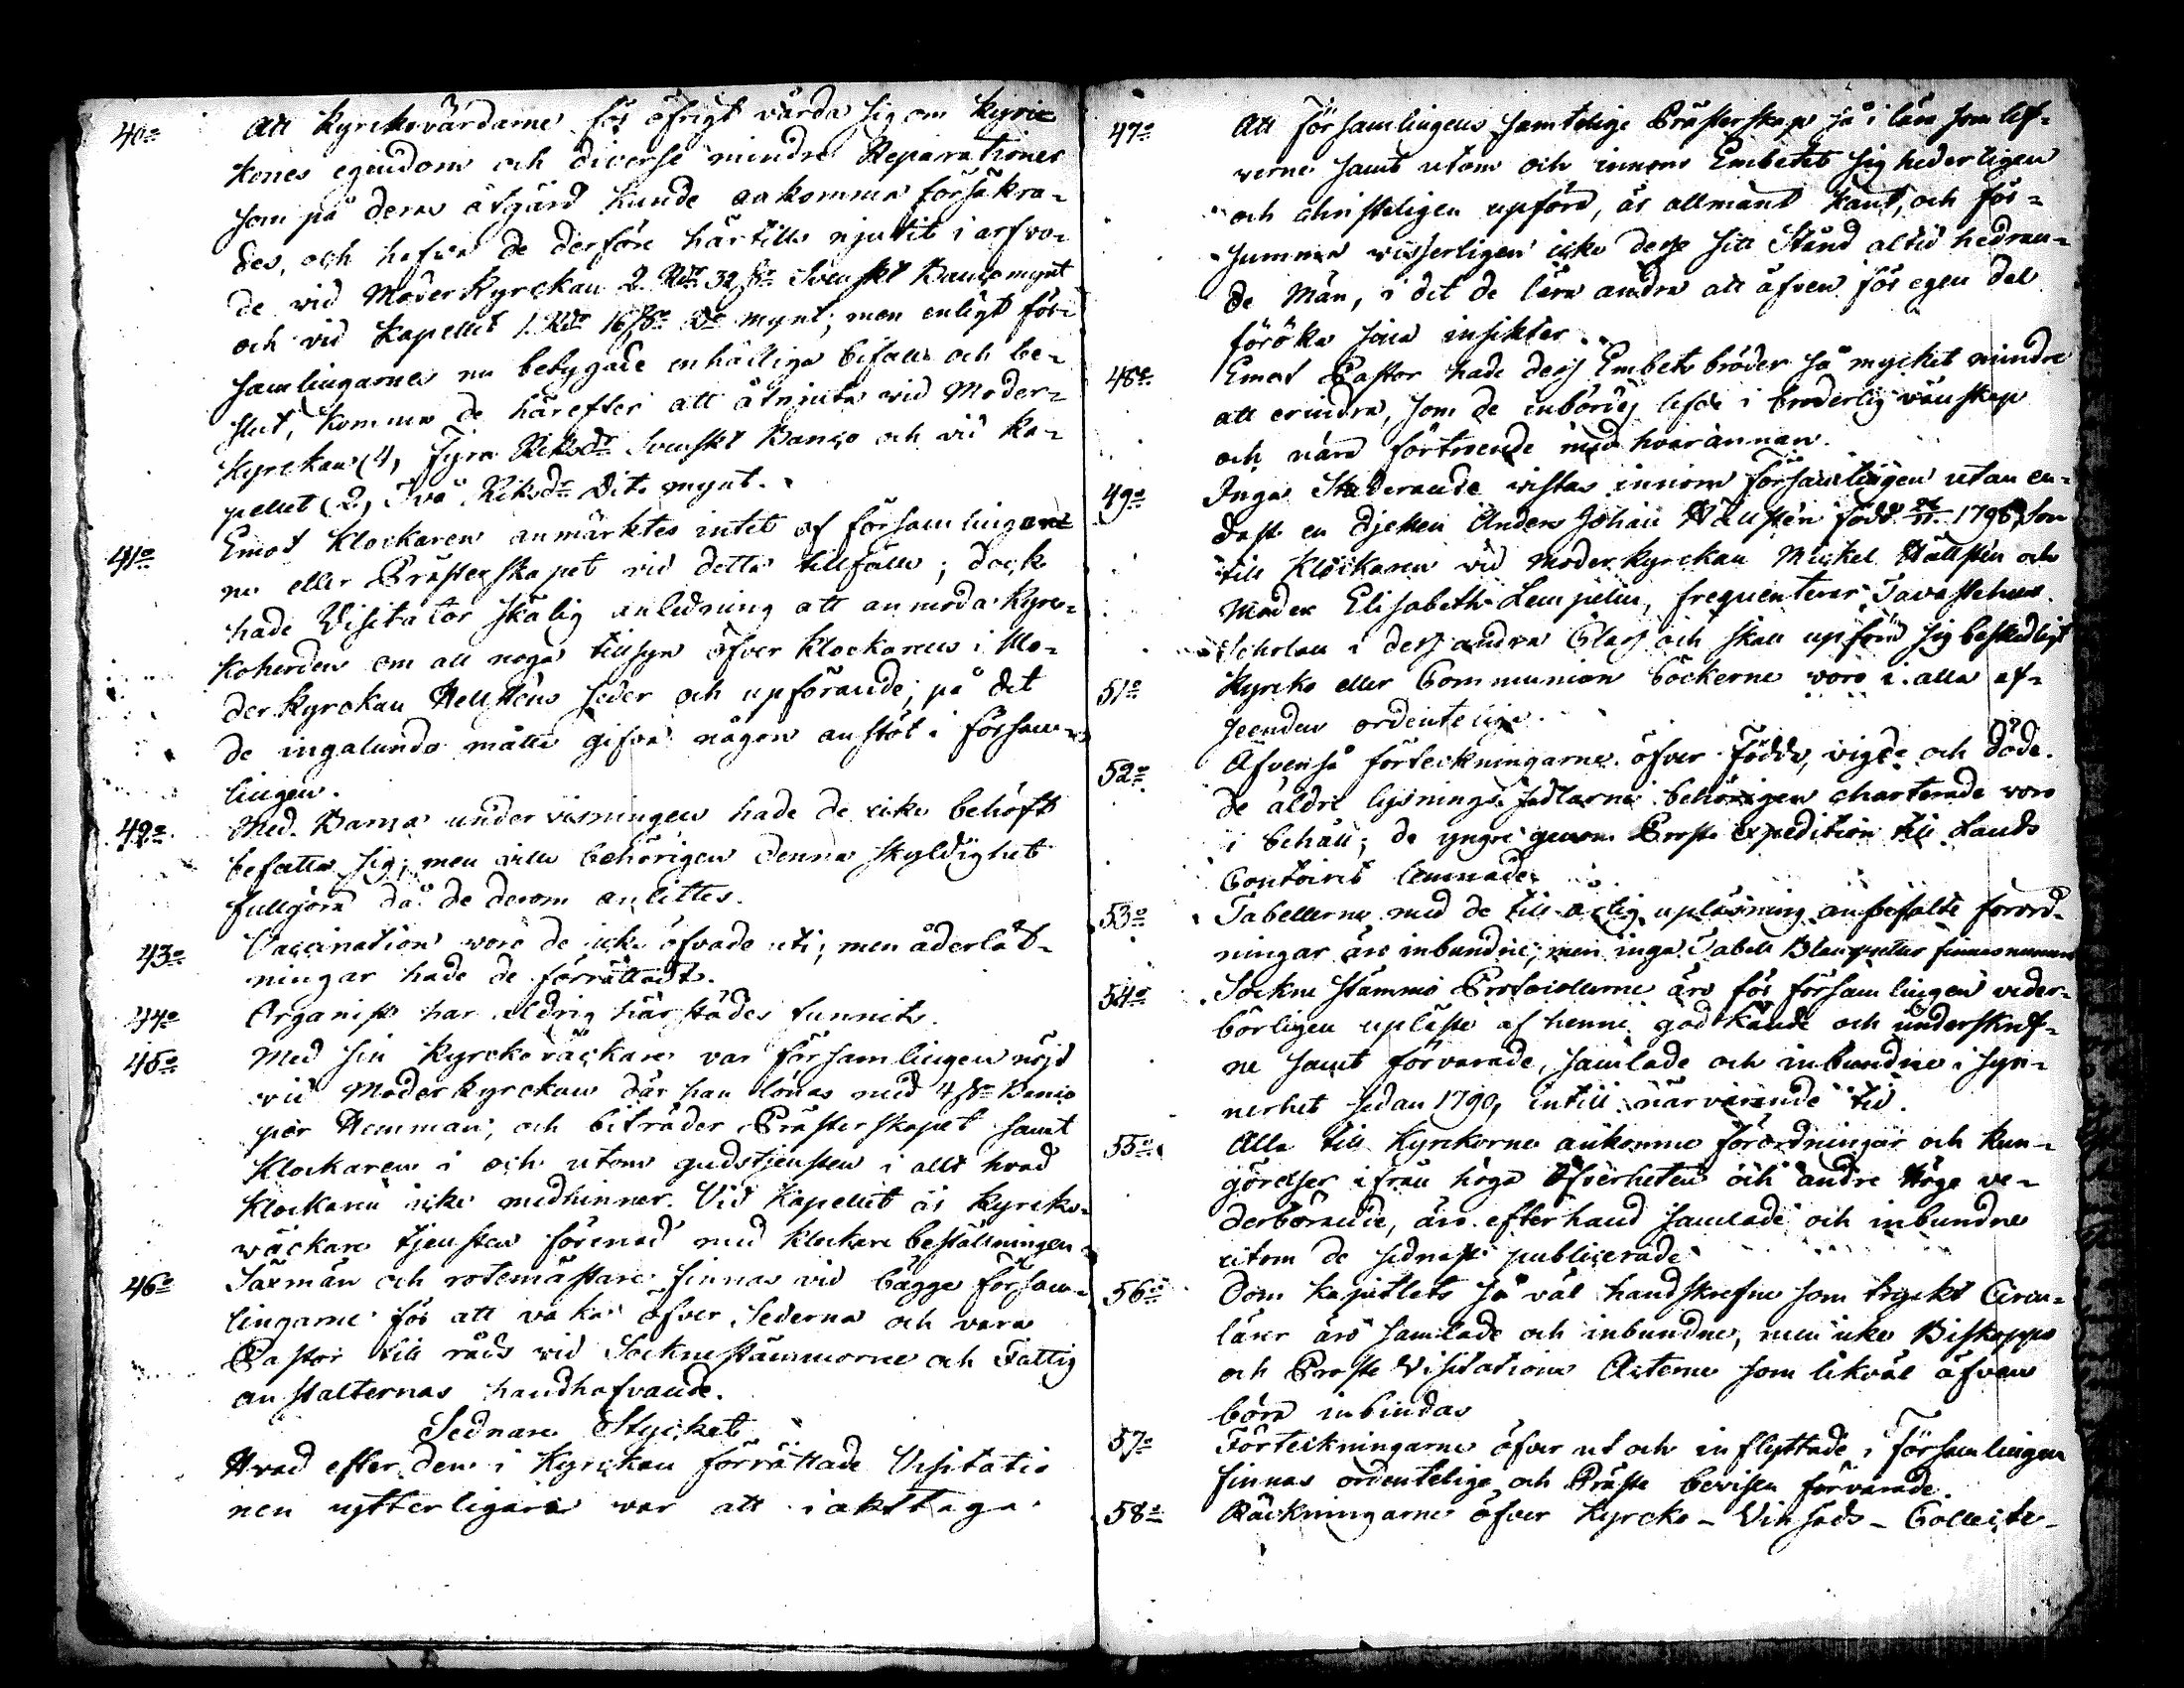 40o Att Kyrkovärdarne för öfrigt vårda sig om Kyrc
kones egendom och diverse mindre Reparationer
som på deras åtgärd kunde ankomma försäkra-
des, och hafva de derföre härtills njutit i arfvo-
de vid Moderkyrckan 2 Rdr 32 sk Svenskt Banco mynt
och vid Kapellet 1 Rdr 16 sk Do mynt; men enligt för-
samlingarnes nu betygade enhälliga bifall och be-
slut, komma de härefter att åtnjuta vid Moder-
kyrckan (4, Fyra Riksdr Svenskt Banco och vid Ka-
pellet (2, Två Riksdr Dito mynt.
41o Emot Klockaren anmärktes intet af församlingar
ne eller Prästerskapet vid detta tillfälle; dock
hade Visitator skälig anledning att anmoda Kyrc-
koherden om att noga tillsyn öfver klockarens i Mo-
derkyrckan Hellsténs seder och upförande; på det
de ingalunda måtte gifva någon anstöt i försam-
lingen.
42o Med Barna undervisningen hade de icke behöft
befatta sig; men skulle behörigen denna skyldighet
fullgöra då de derom anlittes.
43o Vaccination voro de icke öfvade uti; men åderlåt-
ningar hade de förrättadt.
44o Organist har aldrig härstädes funnits.
45o Med sin Kyrckoväckare var församlingen nöjd
vid Moderkyrckan där han lönas med 4 sk Banco
per Hemman; och biträder Prästerskapet samt
Klockaren i och utom gudstjensten i allt hvad
Klockaren icke medhinner. Vid Kapellet är Kyrcko-
väckare tjensten förenad med klockare beställningen.
46o Säxmän och rotemästare finnas vid bägge försam-
lingarne för att vaka öfver Sederna och vara
Pastor till råds vid Sockne stämmorne och Fattig
anstalternas handhafvande.
Sednare Stycket
Hvad efter den i Kyrckan förrättade Visitatio
nen ytterligare var att iakttaga.
47o Att Församlingens samtelige Prästerskap så i lära som lef-
verne samt utom och innom Embetet sig hederligen
och christeligen upföra, är allmänt kant, och för-
summa visserligen icke desse sitt Stånd altid hedran-
de Män, i det de lära andra att äfven för egen del
föröka sina insikter.
48o Emot Pastor hade dess Embets bröder så mycket mindre
att erindra, som de inbördes lefde i broderlig vänskap
och nära förtroende med hvarannan.
49o Inga Studerande vistas innom församlingen utan en-
dast en djeken Anders Johan Hällstén född 1798, Son
till Klockaren vid Moderkyrckan Mickel Hällstén och
Modren Elisabeth Lempelius, frequenterar Tavastehus
Scholan i dess andra Class och skall upföra sig beskedligt
51o Kyrcko eller Communion böckerne voro i alla af-
seenden ordentelige.
52o Äfvenså förteckningarne öfver födde, vigde och döde.
de äldre lysnings sedlarne behörigen charterade voro
i behåll; de yngre genom Prosts expedition till Lands
Contoiret lemnade.
53o Tabellerne med de till årlig upläsning anbefalte förord-
ningar äro inbundne; men inga Tabell Blanquetter finnas numera
54o Sockne stämmo Protocollerne äro för församlingen veder-
börligen upläste af henne godkände och underskref-
ne samt förvarade, samlade och inbundne i syn-
nerhet sedan 1790, intill närvarande tid.
55o Alla till Kyrkorne ankomne förordningar och Kun-
görelser ifrån höga Öfverheten och andre Höge ve-
derbörande, äro efterhand samlade och inbundne
utom de sednast publicerade
56o Dom kapitlets så väl handskrefne som tryckt Circu-
lärer äro samlade och inbundne, men icke Biskopps
och Prosts Visitations Acterne som likväl äfven
böra inbindas
57o Förteckningarne öfver ut och in flyttade i församlingen
finnas ordentelige och Präste bevisen förvarade.
58o Räckningarne öfver Kyrcko - Vinsads - Collect-